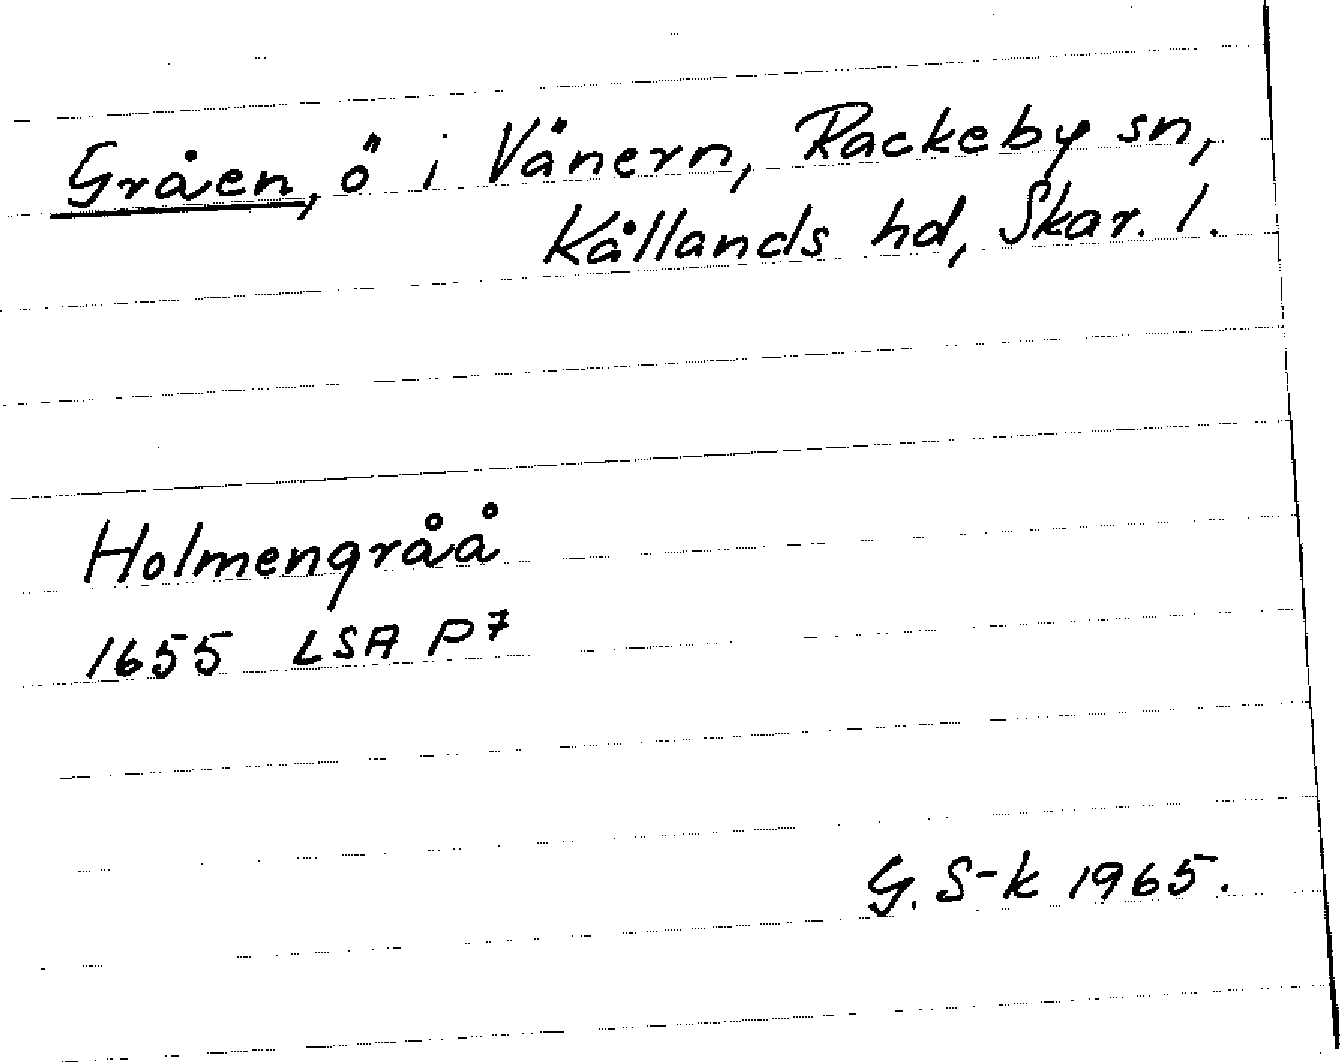 Gråen, ö i Vänern, Rackeby sn,
Kållands hd, Skar. l.
Holmengråå
1655 LSA P7
G. S-k 1965.